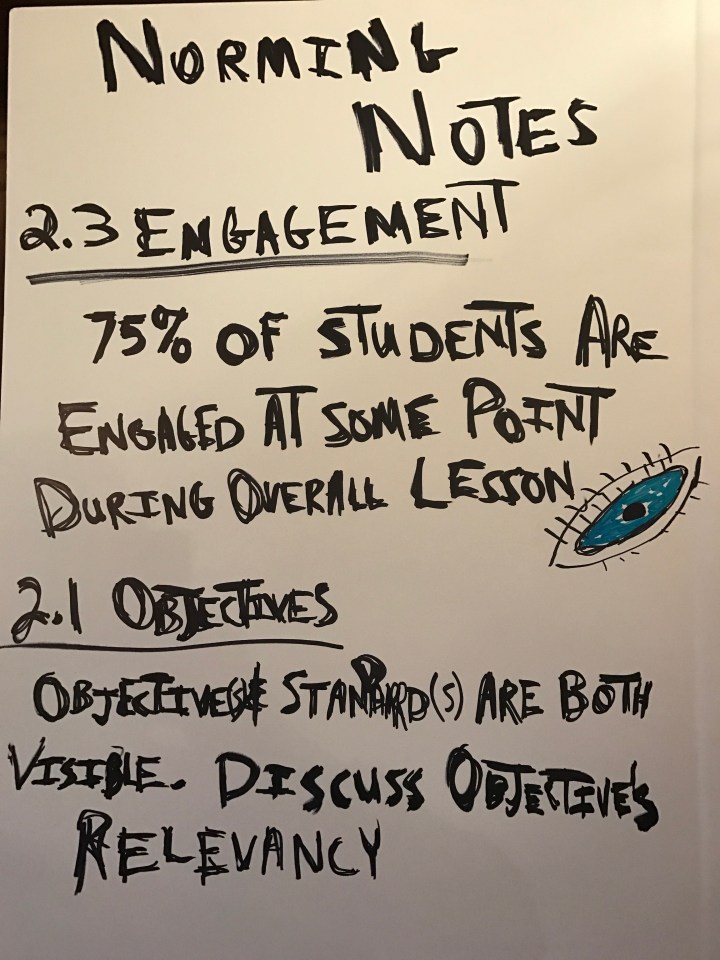 NORMING
NOTES
2.3 ENGAGEMENT
75% OF STUDENTS ARE
ENGAGED AT SOME POINT
DURING OVERALL LESSON
2.1 OBJECTIVES
OBJECTIVE(S)& STANDARD(S) ARE BOTH
VISIBLE. DISCUSS OBJECTIVE'S
RELEVANCY